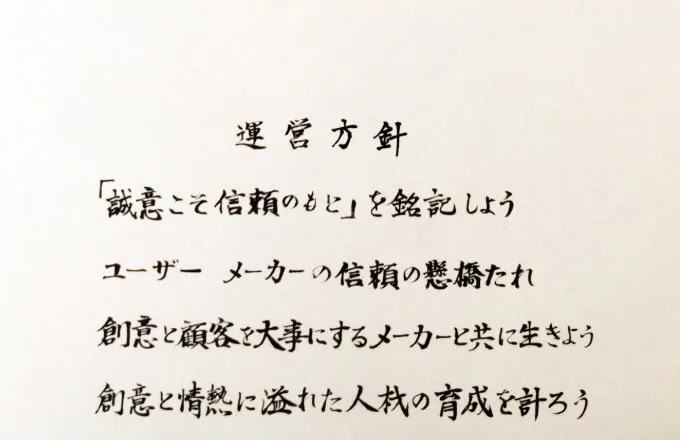 運営方針
「誠意こそ信頼のもと」を銘記しよう
ユーザー メーカーの信頼の懸橋たれ
創意と顧客を大事にするメーカーと共に生きよう
創意と情熱に溢れた人材の育成を計ろう